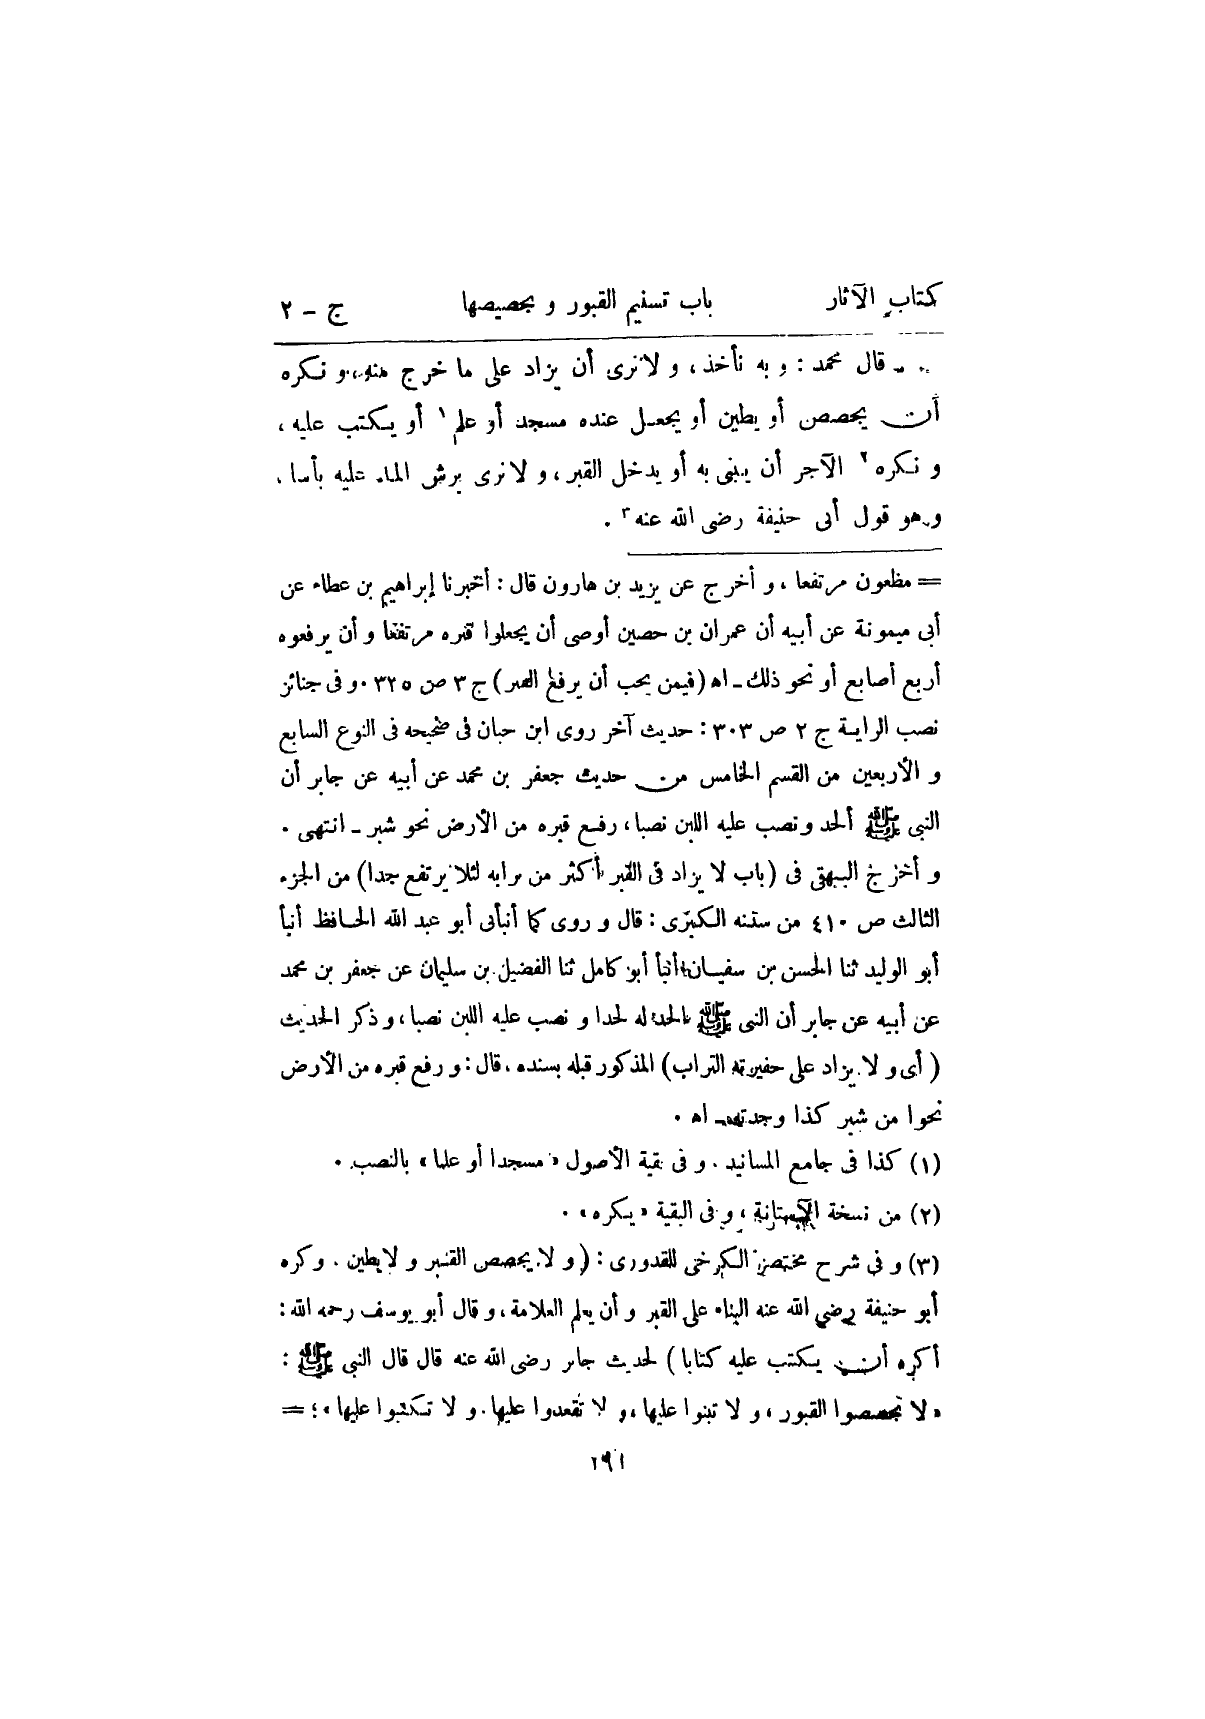 كتاب الآثار باب تسنيم القبور و تجصيصها ج - ٢
قال محمد : و به نأخذ ، و لا نرى أن يزاد على ما خرج منه ، و نكره
أن يجصص أو يطين أو يجعل عنده مسجد أو علم ١ أو يكتب عليه ،
و نكره ٢ الآجر أن يبنى به أو يدخل القبر ، و لا نرى برش الماء عليه بأسا ،
و هو قول أبى حنيفة رضى الله عنه ٣ .
= مظعون مرتفعا ، و أخرج عن يزيد بن هارون قال : أخبرنا إبراهيم بن عطاء عن
أبى ميمونة عن أبيه أن عمران بن حصين أوصى أن يجعلوا قبره مرتفعا و أن يرفعوه
أربع أصابع أو نحو ذلك - اه ( فيمن يحب أن يرفع القبر ) ج ٣ ص ٣٢٥ . و فى جنائز
نصب الراية ج ٢ ص ٣٠٣ : حديث آخر روى ابن حبان فى صحيحه فى النوع السابع
و الأربعين من القسم الخامس من حديث جعفر بن محمد عن أبيه عن جابر أن
النبى ﷺ ألحد و نصب عليه اللبن نصبا ، رفع قبره من الأرض نحو شبر - انتهى .
و أخرج البيهقى فى ( باب لا يزاد فى القبر أكثر من ترابه لئلا يرتفع جدا ) من الجزء
الثالث ص ٤١٠ من سننه الكبرى : قال و روى كما أنبأنى أبو عبد الله الحافظ أنبأ
أبو الوليد ثنا الحسن بن سفيان أنبأ أبو كامل ثنا الفضيل بن سليمان عن جعفر بن محمد
عن أبيه عن جابر أن النبى ﷺ الحد له لحدا و نصب عليه اللبن نصبا ، و ذكر الحديث
( أى و لا يزاد على حفيرته التراب ) المذكور قبله بسنده ، قال : و رفع قبره من الأرض
نحوا من شبر كذا وجدته - اه .
(١) كذا فى جامع المسانيد . و فى بقية الأصول « مسجدا أو علما » بالنصب .
(٢) من نسخة الآستانة ، و فى البقية « يكره » .
(٣) و فى شرح مختصر الكرخى للقدورى : ( و لا يجصص القبر و لا يطين . و كره
أبو حنيفة رضي الله عنه البناء على القبر و أن يعلم العلامة ، و قال أبو يوسف رحمه الله :
أكره أن يكتب عليه كتابا ) لحديث جابر رضى الله عنه قال قال النبى ﷺ :
« لا تجصصوا القبور ، و لا تبنوا عليها ، و لا تقعدوا عليها . و لا تكتبوا عليها » ؛ =
١٩١